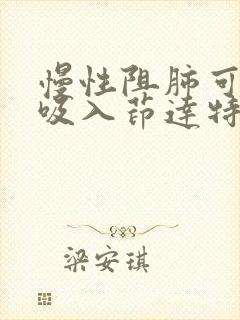 慢性阻肺可
吸入茚达特
梁安琪